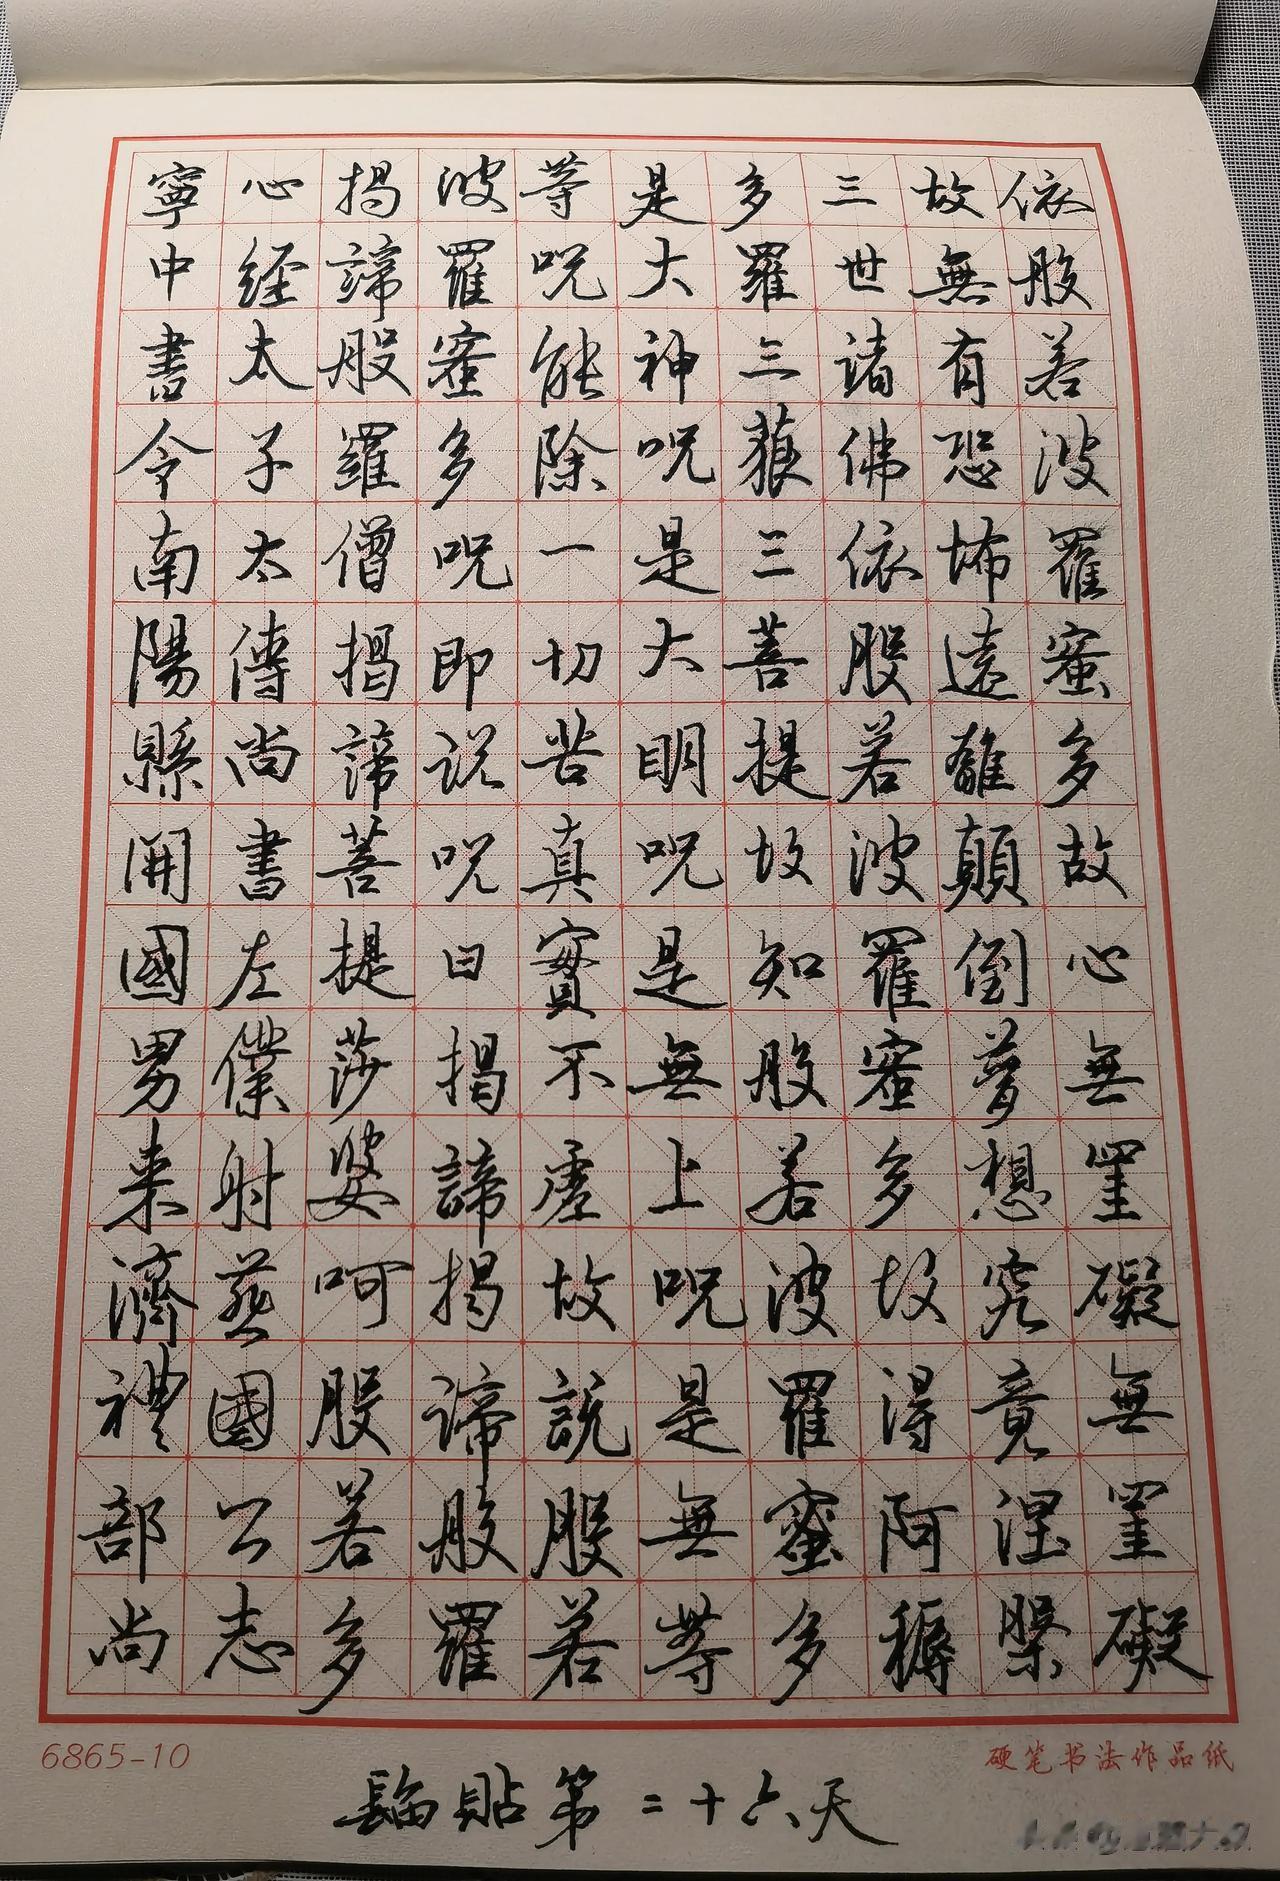 依般若波羅蜜多故心無罣礙無罣礙
故無有恐怖遠離顛倒夢想究竟涅槃
三世諸佛依般若波羅蜜多故得阿耨
多羅三藐三菩提故知般若波羅蜜多
是大神呪是大明呪是無上呪是無等
等呪能除一切苦真實不虛故說般若
波羅蜜多呪即说呪曰揭諦揭諦般羅
揭諦般羅僧揭諦菩提莎婆呵般若多
心經太子太傅尚書左僕射燕國公志
寧中書令南陽縣開國男来濟禮部尚
6865-10
硬笔书法作品纸
臨貼第二十六天